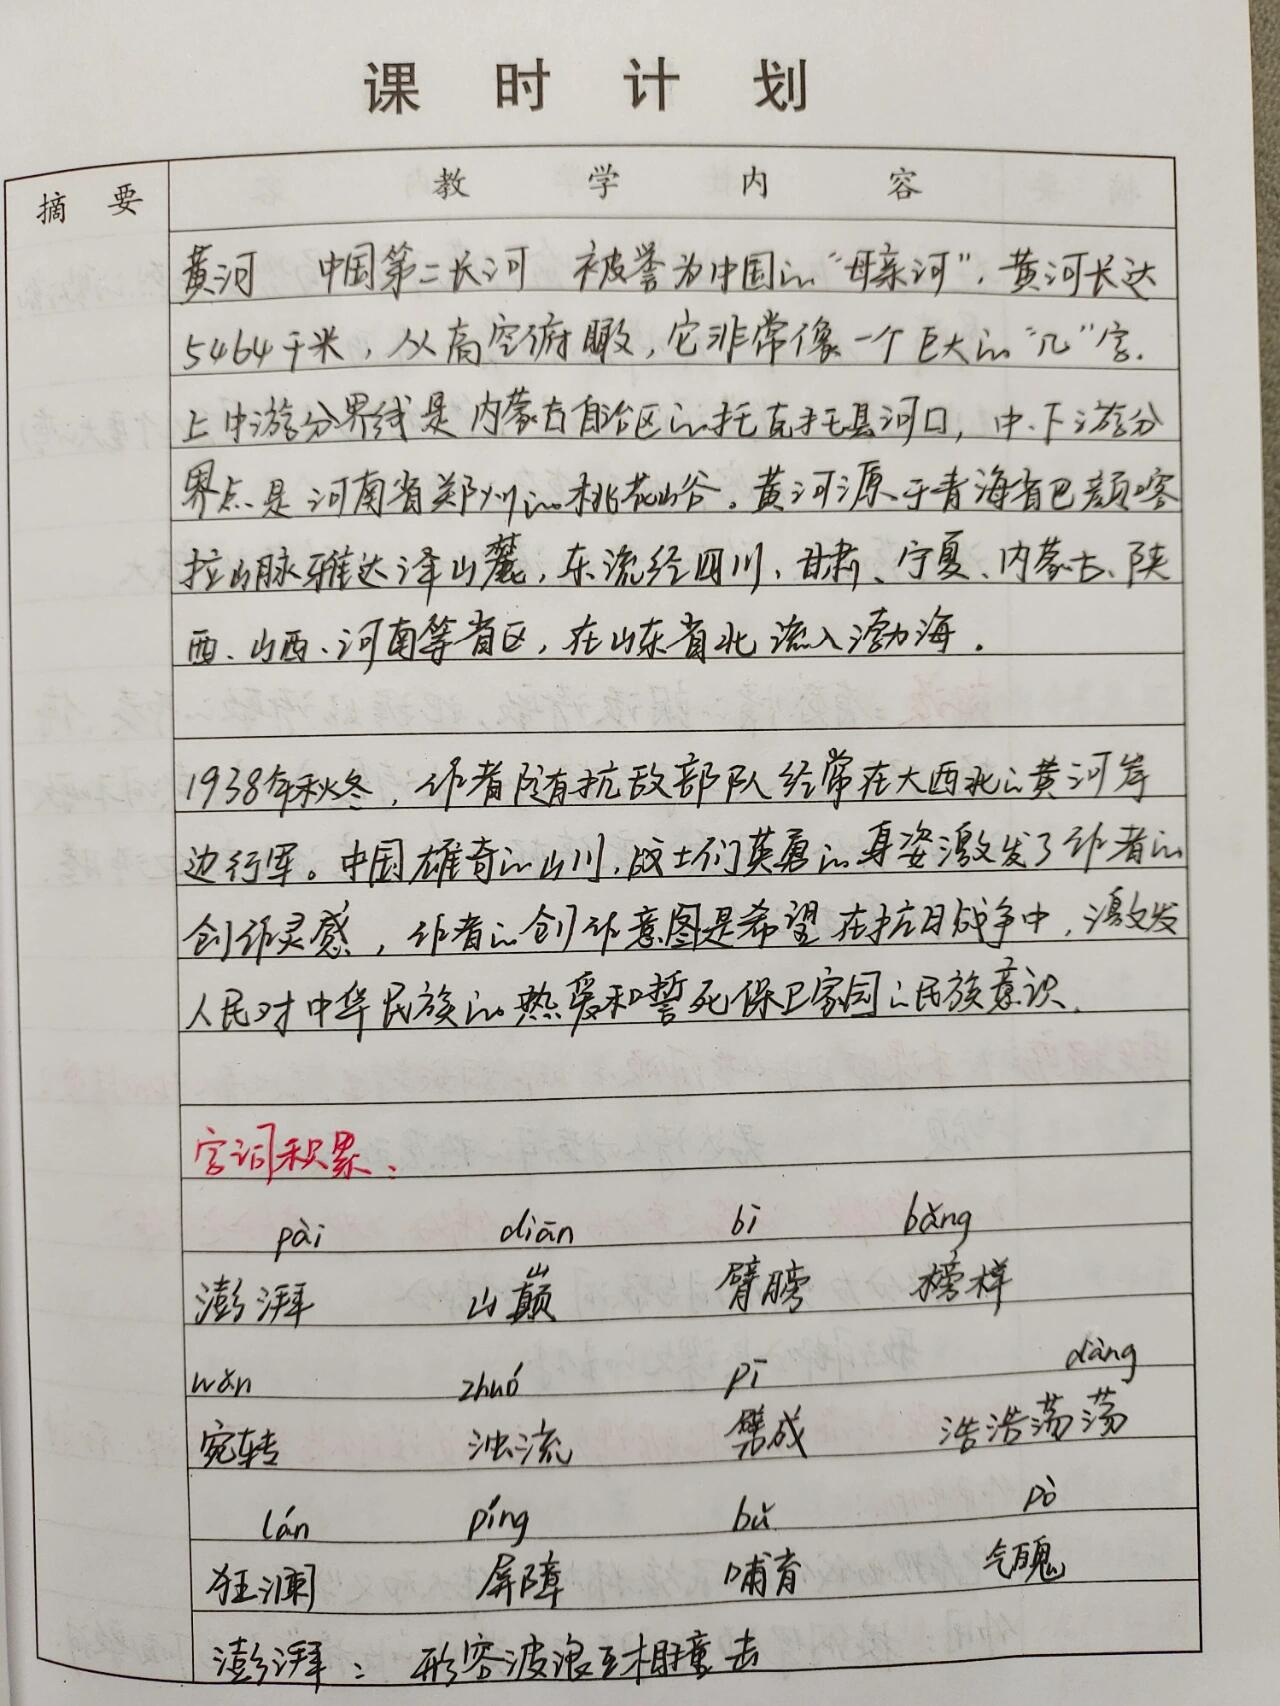 课时计划
摘要 教学内容
黄河 中国第二长河 被誉为中国的“母亲河”。黄河长达
5464千米，从高空俯瞰，它非常像一个巨大的“几”字.
上中游分界线是内蒙古自治区的托克托县河口，中、下游分
界点是河南省郑州的桃花山谷。黄河源于青海省巴颜喀
拉山脉雅达泽山麓，东流经四川、甘肃、宁夏、内蒙古、陕
西、山西、河南等省区，在山东省北流入渤海。
1938年秋冬，作者随抗敌部队经常在大西北的黄河岸
边行军。中国雄奇的山川，战士们英勇的身姿激发了作者的
创作灵感，作者的创作意图是希望在抗日战争中，激发
人民对中华民族的热爱和誓死保卫家园的民族意识.
字词积累：
pài diān bì bǎng
澎湃 山巅 臂膀 榜样
wǎn zhuó pī dàng
宛转 浊流 劈成 浩浩荡荡
lán píng bǔ pò
狂澜 屏障 哺育 气魄
澎湃：形容波浪互相撞击